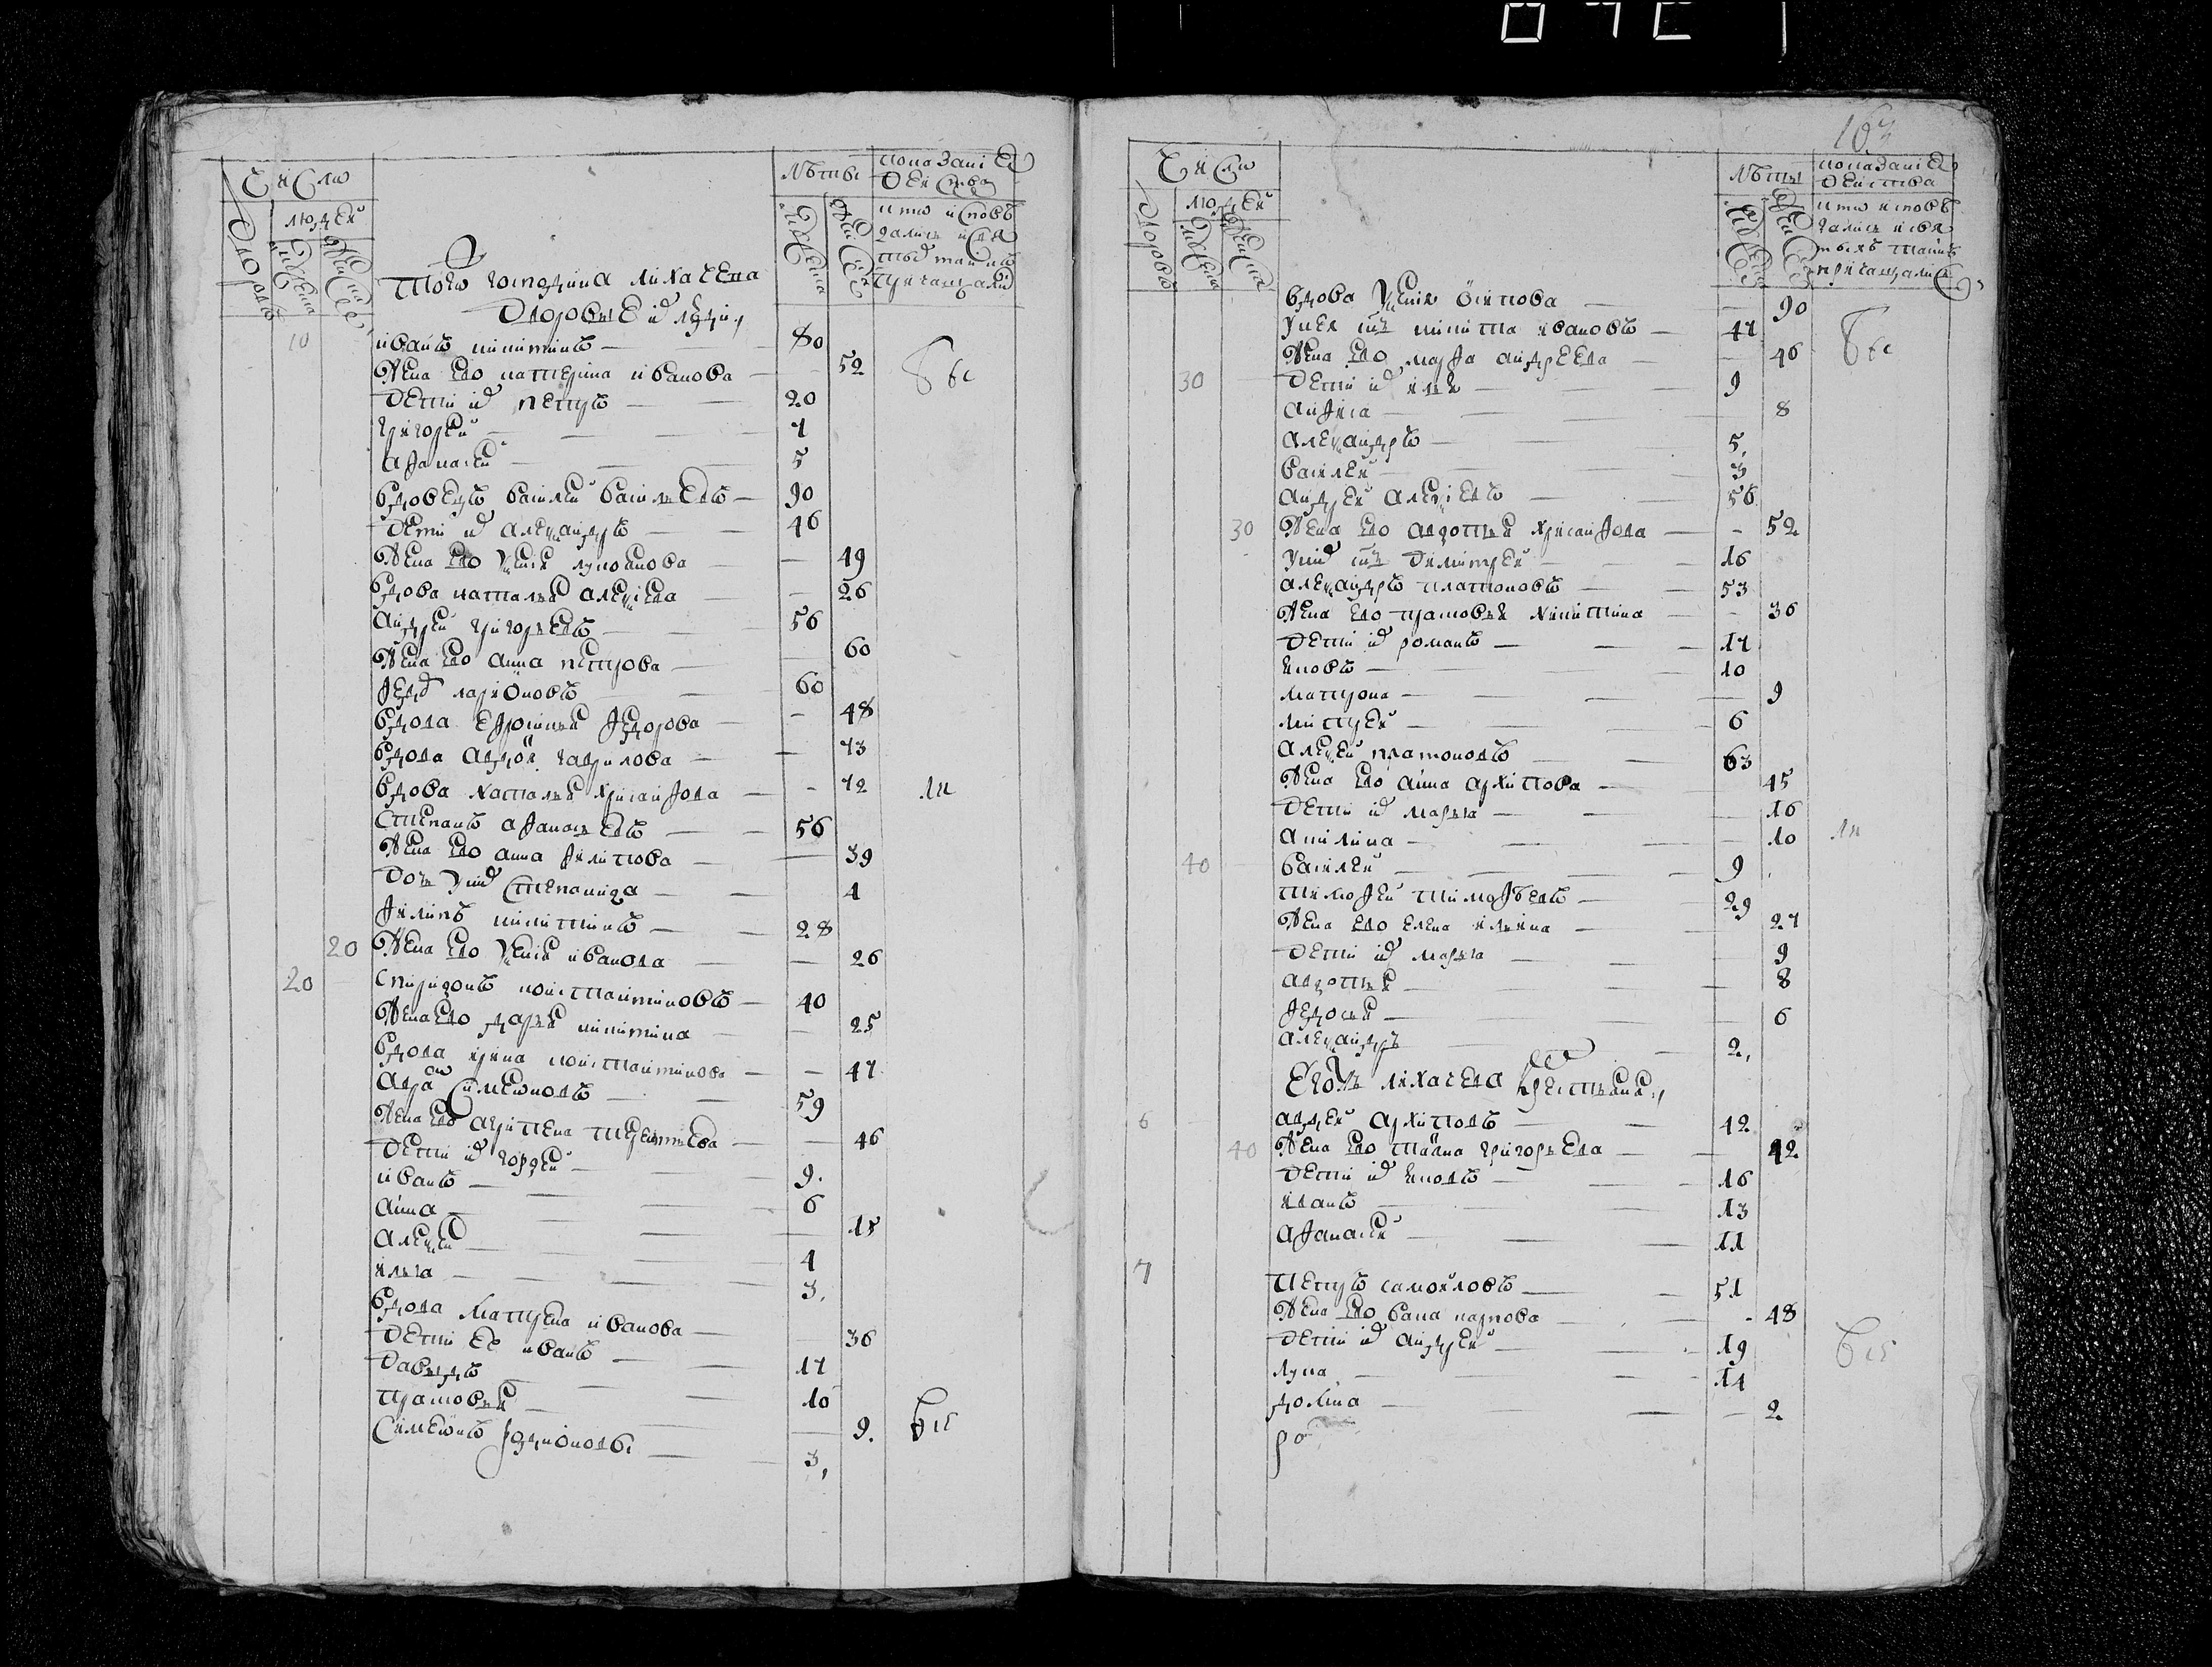 Число
Лѣты
показание
действа
людей
кто исповѣ
дались и свя
тых таинъ
причащали
дворовъ
Того господина лихачева
Дворовые их люди
10 иванъ никитинъ — 80
Жена ево катерина иванова — 52
Дети их петръ — 20
григорей — 7
афанасей — 5
вдовецъ василей васильевъ — 90
Дети их александръ — 46
Жена ево ксения лукоанова — 49
вдова наталья алексиева — 26
андрей григорьевъ — 56
Жена ево анна петрова — 60
федо ларионовъ — 60
вдова ефросинья федорова — 48
вдова авдоя гаврилова — 73
вдова наталья хрисанфова — 72
степанъ афанасьевъ — 56
Жена ево анна филипова — 39
Дочь у них степанида — 4
филипъ никитинъ — 28
20 Жена ево ксения иванова — 26
20 спиридонъ константиновъ — 40
Жена ево дарья никитина — 25
вдова ирина константинова — 47
авраам симеоновъ — 59
Жена ево агрипена терентиева — 46
Дети их гордей — 9
иванъ — 6
анна — 15
алексей — 4
илья — 3
вдова матрена иванова — 36
Дети ее иванъ — 17
Давыдъ — 10
прасковья — 9
Симеонъ родионовъ — 3
163
Число
Лѣты
показание
действа
людей
кто исповѣ
дались и свя
тыхъ таинъ
причащались
дворовъ
вдова ксения осипова — 90
у нея сынъ никита ивановъ — 47
Жена ево марфа андреева — 46
30 Дети их илья — 9
анфиса — 8
александръ — 5
василей — 3
андрей алексиевъ — 56
30 Жена ево авдотья хрисанфова — 52
у них сынъ димитрей — 16
александръ платоновъ — 53
Жена ево прасковья никитина — 36
Дети их романъ — 17
яковъ — 10
матрона — 9
митрей — 6
алексей платоновъ — 63
Жена ево анна архипова — 45
Дети их марья — 16
акилина — 10
40 василей — 9
тимофей тимофеевъ — 29
Жена ево елена ильина — 27
Дети их марья — 9
авдотья — 8
федосья — 6
александръ — 2
Его ж лихачева крестьяня
6 авдей архиповъ — 42
40 Жена ево татиана григорьева — 42
Дети их яковъ — 16
иванъ — 13
афанасей — 11
7 Петръ самойловъ — 51
Жена ево васа карпова — 48
Дети их андрей — 19
лука — 14
домна — 2